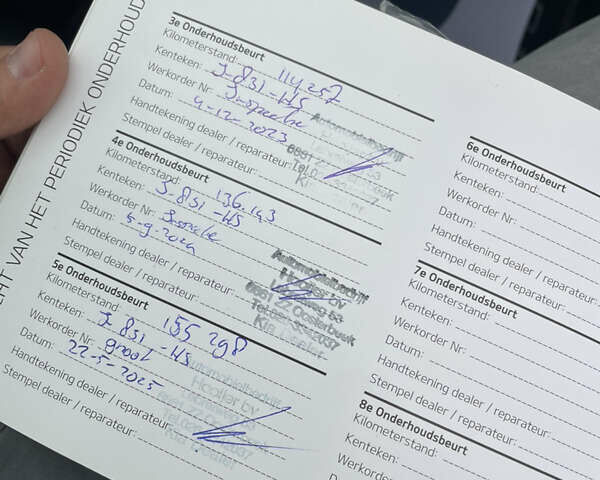 CHT VAN HET PERIODIEK ONDERHOUD
3e Onderhoudsbeurt
Kilometerstand: 114.257
Kenteken: J-831-HS
Werkorder Nr: Inspectie
Datum: 4-12-2023
Handtekening dealer / reparateur:
Stempel dealer / reparateur:
4e Onderhoudsbeurt
Kilometerstand: 136.143
Kenteken: J-831-HS
Werkorder Nr:
Datum: 5-9-2024
Handtekening dealer / reparateur:
Stempel dealer / reparateur:
Automobielbedrijf
6861 ZZ Oosterbeek
5e Onderhoudsbeurt
Kilometerstand: 155298
Kenteken: J-831-HS
Werkorder Nr: groot
Datum: 22-5-2025
Handtekening dealer / reparateur:
Stempel dealer / reparateur:
6e Onderhoudsbeurt
Kilometerstand:
Kenteken:
Werkorder Nr:
Datum:
Handtekening dealer / reparateur:
Stempel dealer / reparateur:
7e Onderhoudsbeurt
Kilometerstand:
Kenteken:
Werkorder Nr:
Datum:
Handtekening dealer / reparateur:
Stempel dealer / reparateur:
8e Onderhoudsbeurt
Kilometerstand:
Kenteken:
Werkorder Nr:
Datum:
Handtekening dealer / reparateur: